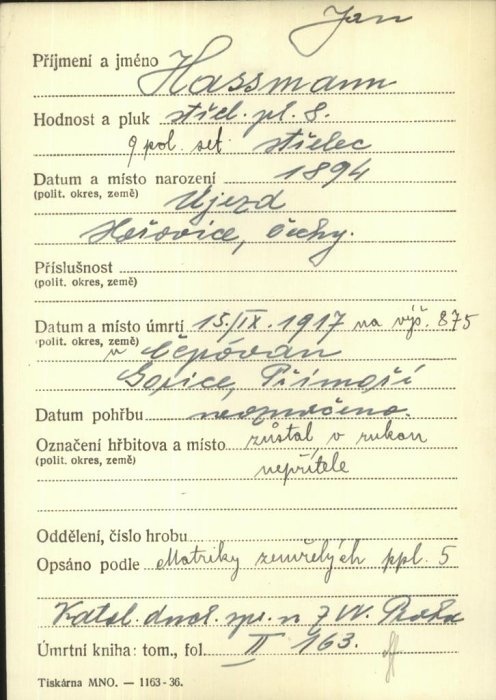 Jan
Příjmení a jméno Hassmann
Hodnost a pluk střel. pl. 8.
9 pol. set. střelec
Datum a místo narození 1894
(polit. okres, země) Újezd
Hořovice, Čechy.
Příslušnost
(polit. okres, země)
Datum a místo úmrtí 15./IX. 1917 na výš. 875
(polit. okres, země) u Čepóvan
Gorice, Přímoří
Datum pohřbu neoznačeno.
Označení hřbitova a místo zůstal v rukou
(polit. okres, země) nepřítele
Oddělení, číslo hrobu
Opsáno podle Matriky zemřelých ppl. 5
Katol. duch. spr. n ZVV. Praha
Úmrtní kniha: tom., fol. II 163.
Tiskárna MNO. — 1163-36.